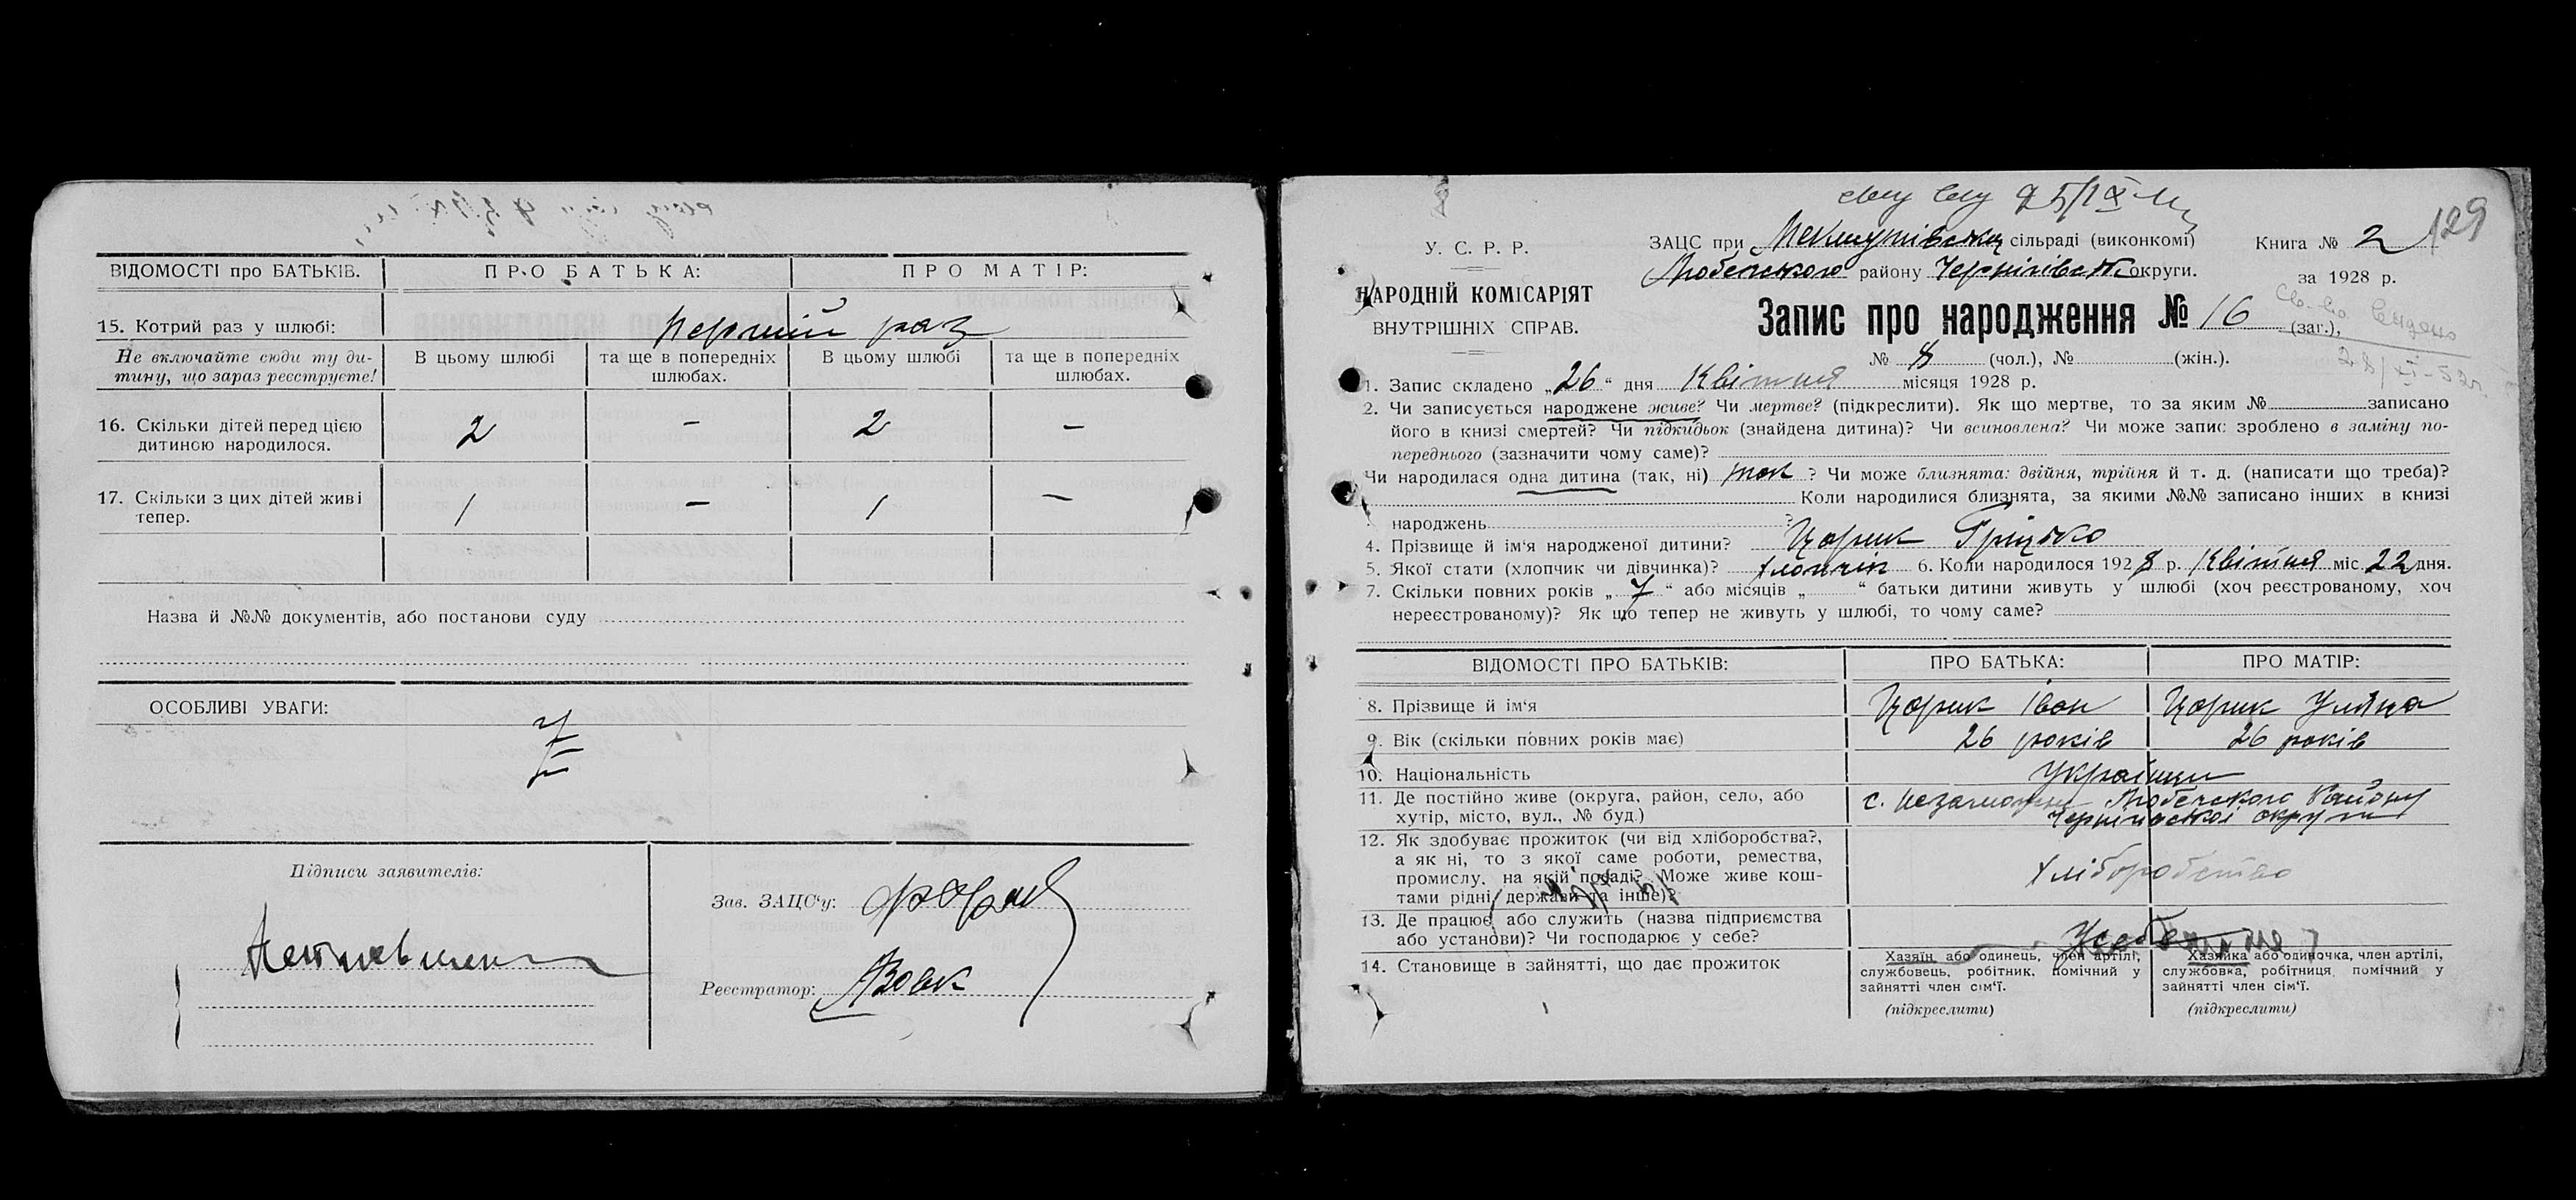 ВІДОМОСТІ про БАТЬКІВ.
ПРО БАТЬКА:
ПРО МАТІР:
15. Котрий раз у шлюбі:
Перший раз
Не включайте сюди ту ди-
тину, що зараз реєструєте!
В цьому шлюбі
та ще в попередніх
шлюбах.
В цьому шлюбі
та ще в попередніх
шлюбах.
16. Скільки дітей перед цією
дитиною народилося.
2 — 2 —
17. Скільки з цих дітей живі
тепер.
1 — 1 —
Назва й №№ документів, або постанови суду
ОСОБЛИВІ УВАГИ:
Підписи заявителів:
Зав. ЗАЦС‘у:
Реєстратор: Вовк
129
У. С. Р. Р.
НАРОДНІЙ КОМІСАРІЯТ
ВНУТРІШНІХ СПРАВ.
ЗАЦС при сільраді (виконкомі)
Любечського району Чернігівськ округи.
Книга № 2
за 1928 р.
Запис про народження № 16 (заг.),
№ 8 (чол.), № (жін.).
28/XI-52р.
1. Запис складено „26“ дня Квітня місяця 1928 р.
2. Чи записується народжене живе? Чи мертве? (підкреслити). Як що мертве, то за яким № записано
його в книзі смертей? Чи підкидьок (знайдена дитина)? Чи всиновлена? Чи може запис зроблено в заміну по-
переднього (зазначити чому саме)?
Чи народилася одна дитина (так, ні) так ? Чи може близнята: двійня, трійня й т. д. (написати що треба)?
Коли народилися близнята, за якими №№ записано інших в книзі
народжень ?
4. Прізвище й ім‘я народженої дитини? Цорик Гріцько
5. Якої стати (хлопчик чи дівчинка)? хлопчік 6. Коли народилося 1928 р. Квітня міс 22 дня.
7. Скільки повних років „7“ або місяців „ “ батьки дитини живуть у шлюбі (хоч реєстрованому, хоч
нереєстрованому)? Як що тепер не живуть у шлюбі, то чому саме?
ВІДОМОСТІ ПРО БАТЬКІВ:
ПРО БАТЬКА:
ПРО МАТІР:
8. Прізвище й ім‘я
Цорик Іван
Цорик Уляна
9. Вік (скільки повних років має)
26 років
26 років
10. Національність
Українци
11. Де постійно живе (округа, район, село, або
хутір, місто, вул., № буд.)
с. Любечського Району
Чернігівської округи
12. Як здобуває прожиток (чи від хліборобства?,
а як ні, то з якої саме роботи, ремества,
промислу, на якій посаді? Може живе кош-
тами рідні, держави та інше)?
хліборобство
13. Де працює, або служить (назва підприємства
або установи)? Чи господарює у себе?
Усебе
14. Становище в зайнятті, що дає прожиток
Хазяїн, або одинець, член артілі,
службовець, робітник, помічний у
зайнятті член сім‘ї.
(підкреслити)
Хазяйка або одиночка, член артілі,
службовка, робітниця, помічний у
зайнятті член сім‘ї.
(підкреслити)